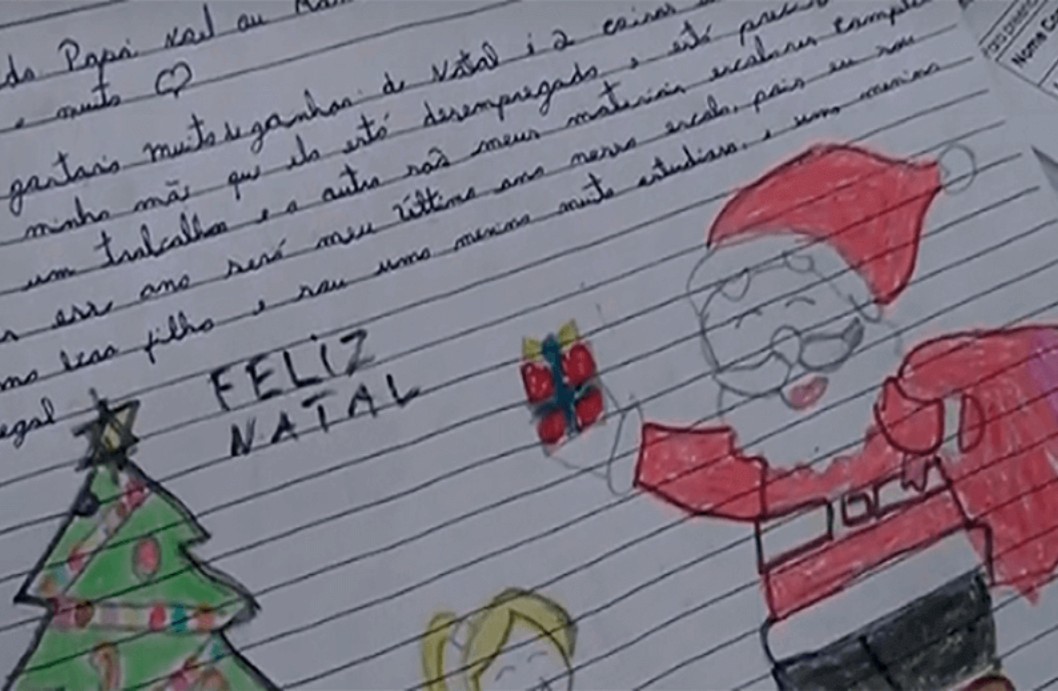 do Papai Noel ou
e muito
gostaria muito de ganhar de Natal é 2 coisas
minha mãe que ela está desempregada e está
um trabalho e a outra são meus materiais escolares
esse ano será meu último ano nessa escola, pois eu sou
boa filha e sou uma menina muito estudiosa, e uma menina
egal
FELIZ
NATAL
Nome Co